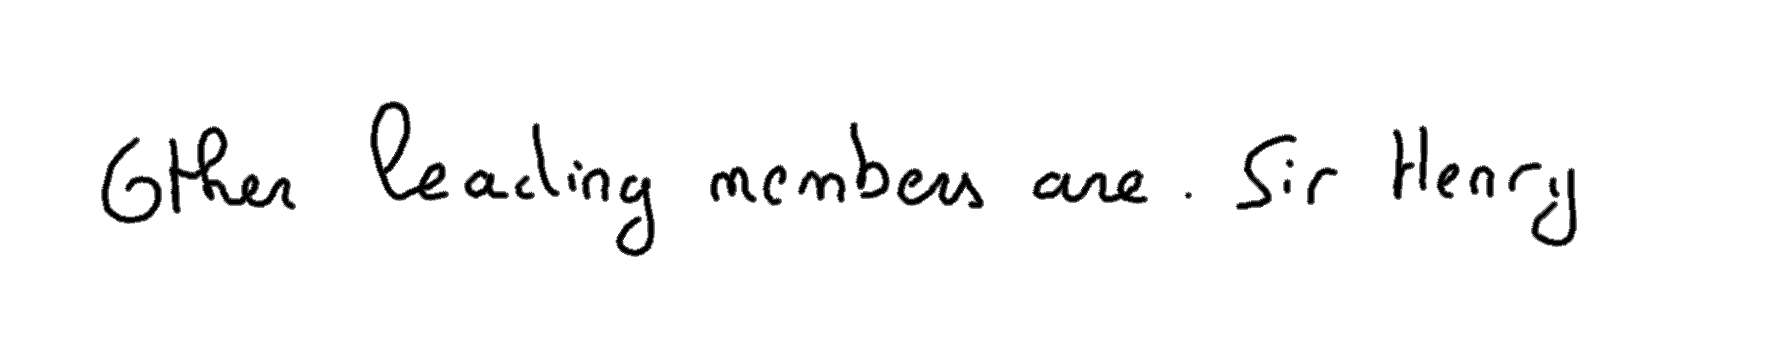 Other leading members are . Sir Henry